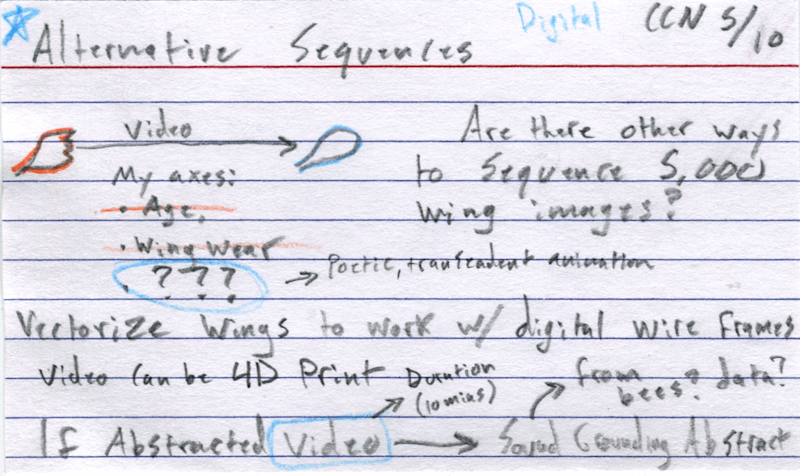 Digital CCN 5/10
Alternative Sequences
Video
Are there other ways
to Sequence 5,000
wing images?
My axes:
• Age,
• Wing Wear
• ??? → Poetic, transcendent animation
Vectorize Wings to work w/ digital wire frames
Video Can be 4D Print
Duration
(10 mins)
from bees? data?
If Abstracted Video → Sound Grounding Abstract